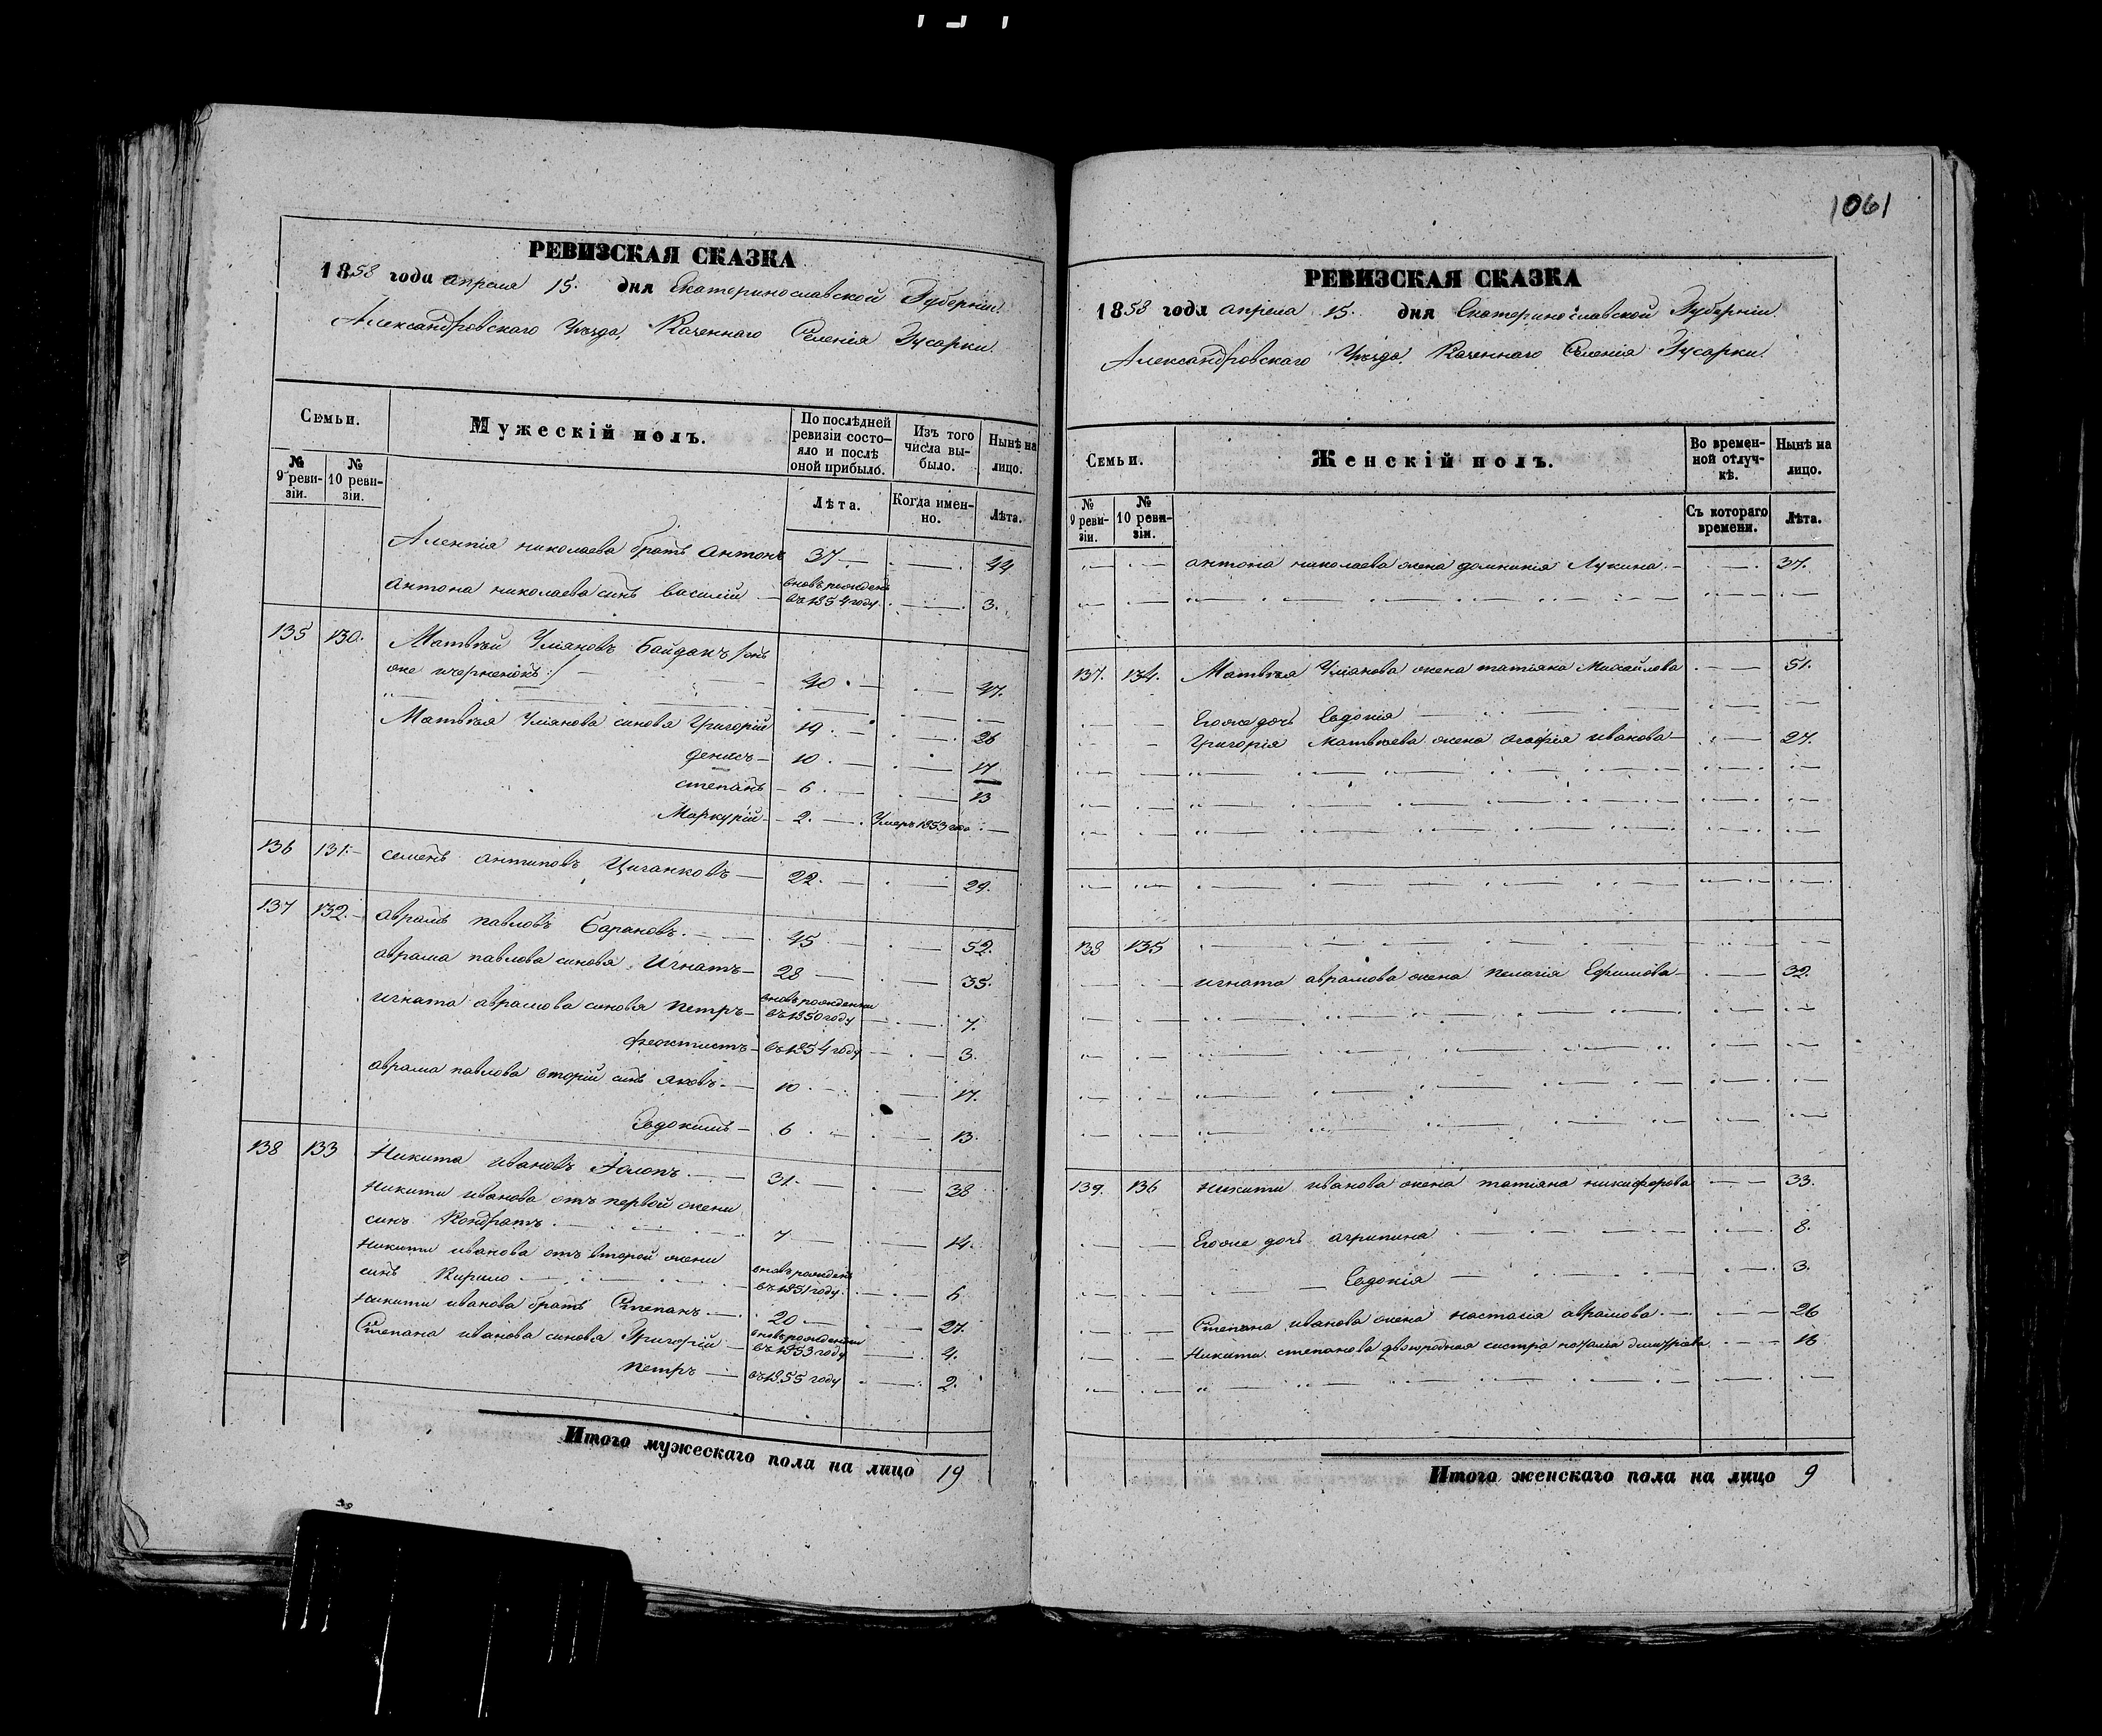 1061
РЕВИЗСКАЯ СКАЗКА
1858 года апреля 15. дня Екатеринославской Губерніи.
Александровскаго Уѣзда, Казеннаго Селенія Гусарки.
Семьи.
Мужескій полъ.
По послѣдней ревизіи состояло и послѣ оной прибыло.
Изъ того числа выбыло.
Нынѣ на лицо.
№ 9 ревизіи.
№ 10 ревизіи.
Лѣта.
Когда именно.
Лѣта.
николаева братъ Антонъ 37. 44
Антона николаева синъ василій вновь рожденъ въ 1854 году. 3.
135 130. Матвѣй Уліяновъ Байдакъ /онъ
же 40. 47.
Матвѣя Уліянова синовя Григорій 19. 26
денисъ 10. 17
степанъ 6. 13
Маркурій 2. Умеръ 1853 года
136 131. семенъ антиповъ Циганковъ 22. 29.
137 132. аврамъ павловъ Барановъ. 45 52.
аврама павлова синовя Игнатъ 28 35.
игната аврамова синовя петръ вновь рожденни въ 1850 году 7.
феоктистъ въ 1854 году 3.
аврама павлова вторій синъ яковъ. 10 17.
Евдокимъ 6. 13.
138 133 Никита ивановъ 31. 38
Никити иванова отъ первой жени
синъ Кондратъ. 7 14.
Никити иванова отъ второй жени
синъ Кирило вновь рожденъ въ 1851 году. 6
Никити иванова братъ Степанъ. 20 27.
Степана иванова синовя Григорій вновь рожденни въ 1853 году 4.
петръ въ 1855 году 2.
Итого мужескаго пола на лицо 19
РЕВИЗСКАЯ СКАЗКА
1858 года апрела 15. дня Екатеринославской Губерніи.
Александровскаго Уѣзда, Казеннаго Селенія Гусарки.
Семьи.
Женскій полъ.
Во временной отлучкѣ.
Нынѣ на лицо.
№ 9 ревизіи.
№ 10 ревизіи.
Съ котораго времени.
Лѣта.
антона николаева жена домникія Лукина. 37.
137. 134. Матвѣя Уліянова жена татіяна Михайлова 51.
Егоже дочь Евдокія
Григорія Матвѣева жена иванова 27.
138 135
игната аврамова жена пелагія Ефимова 32.
139. 136 Никити иванова жена татіяна никифорова 33.
Егоже дочь агрипина 8.
Евдокія 3.
Степана иванова жена настасія аврамова. 26
Никити степанова двоюродная систра 18
Итого женскаго пола на лицо 9